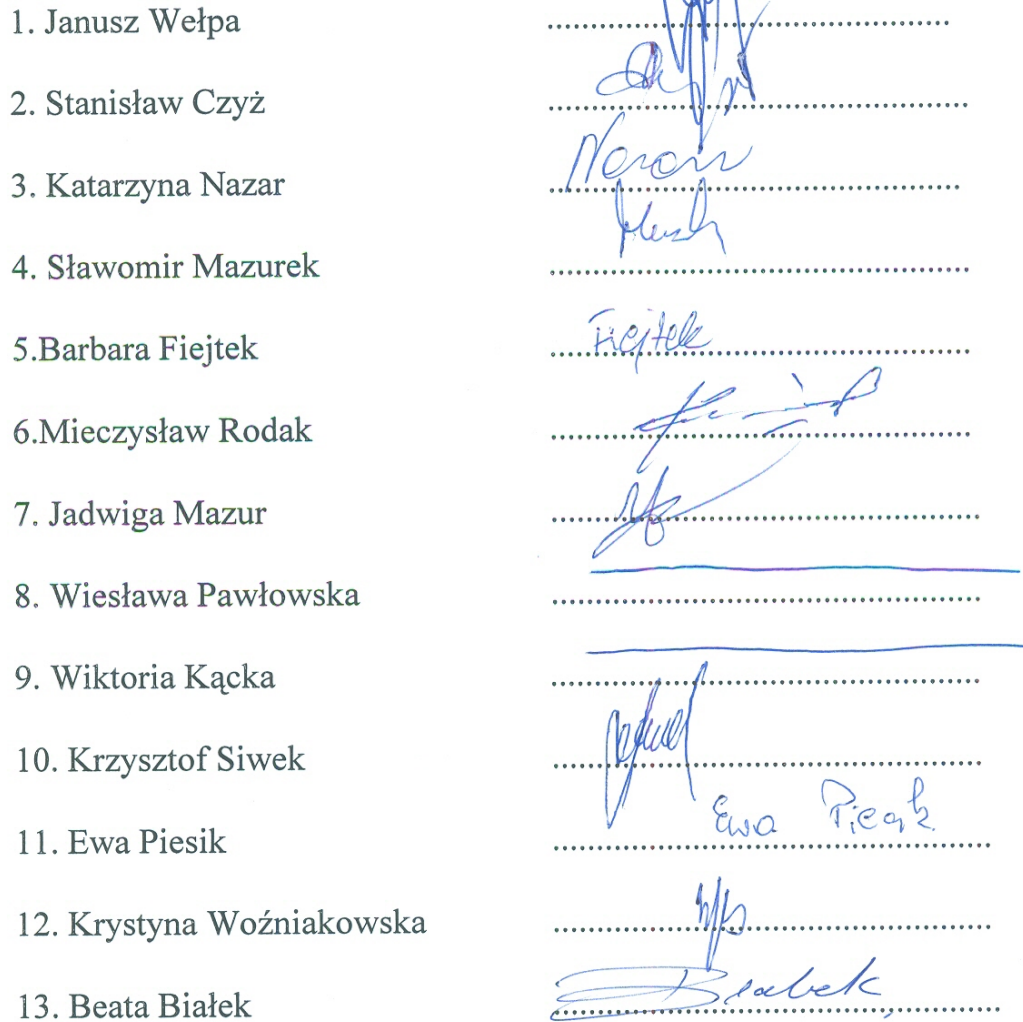 1. Janusz Wełpa ........................................
2. Stanisław Czyż ........................................
3. Katarzyna Nazar ........................................
4. Sławomir Mazurek ........................................
5.Barbara Fiejtek Fiejtek ........................................
6.Mieczysław Rodak ........................................
7. Jadwiga Mazur ........................................
8. Wiesława Pawłowska ........................................
9. Wiktoria Kącka ........................................
10. Krzysztof Siwek ........................................
11. Ewa Piesik Ewa ........................................
12. Krystyna Woźniakowska ........................................
13. Beata Białek ........................................